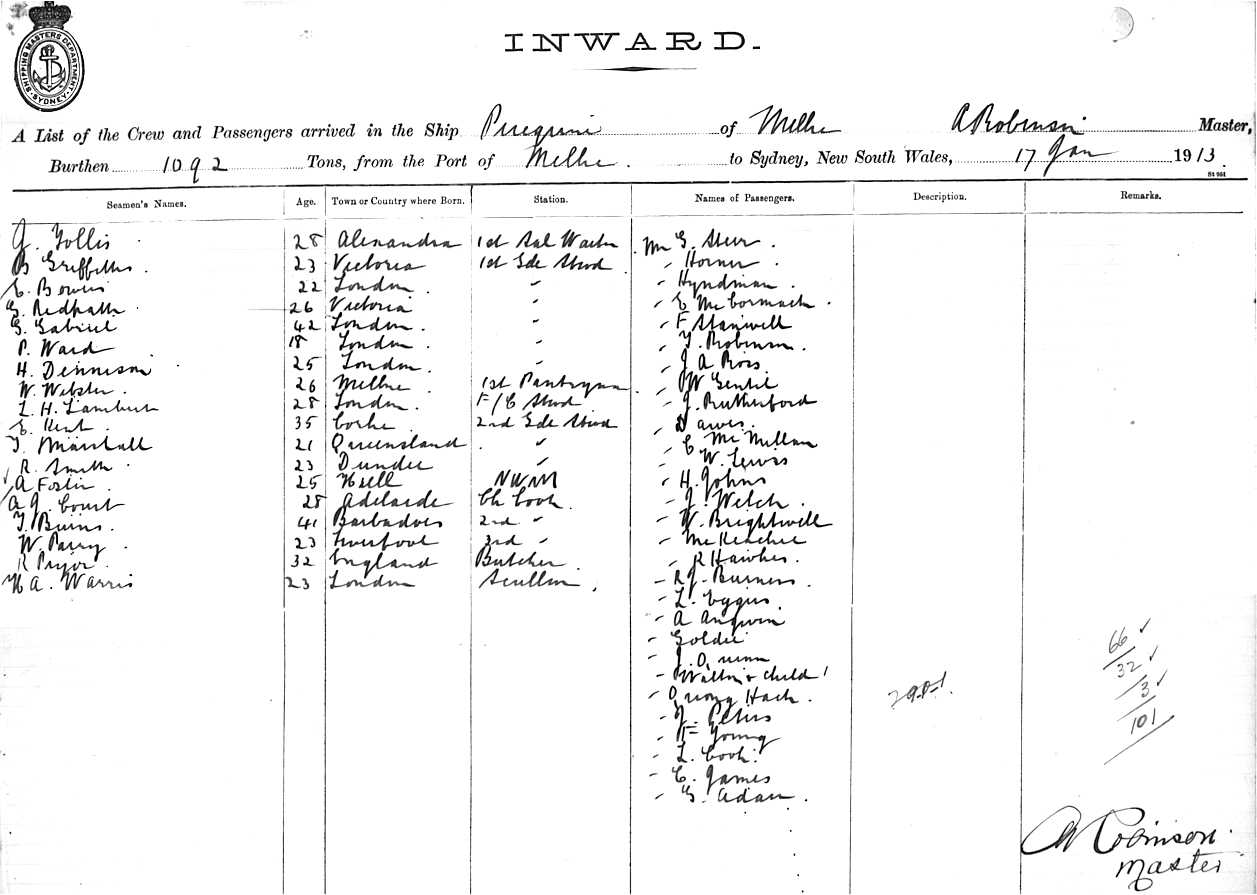 SHIPPING MASTERS DEPARTMENT. SYDNEY.
INWARD.
A List of the Crew and Passengers arrived in the Ship Peregrine of Melbe A Robinson Master,
Burthen 1092 Tons, from the Port of Melbe. to Sydney, New South Wales, 17 Jan 1913.
Seamen's Names. Age. Town or Country where Born. Station. Names of Passengers. Description. Remarks.
28 Alexandra 1st Sal Waiter Mr G. Steer.
B Griffiths. 23 Victoria 1st Sde Stwd " Horner.
E. Bowers 22 London. " " Hyndman.
G. Redpath 26 Victoria " " E McCormack.
G. Gabriel 42 London. " " F Staniwell
P. Ward 18 London. " " T. Robinson.
H. Dennison 25 London. " " J A Ross.
W. Webster. 26 Melbne 1st Pantryman " W Gentil
L. H. Lambert 28 London. F/C Stwd " J. Rutherford
E. Kent. 35 Corke 2nd Sde Stwd " Dawes.
T. Marshall 21 Queensland " " C McMillan
R. Smith. 23 Dundee " " W. Lewis
A Foster. 25 Hull NWM " H. Johns
A J. Court 28 Adelaide Ch Cook. " J. Welch.
T. Burns. 41 Barbadoes 2nd " " W. Brightwell
W. Parry. 23 Liverpool 3rd " " McKenchie
R Pryor. 32 England Butcher. " R Hawkes.
H A. Warris 23 London Scullion. " R J. Burness.
" L.
" A Angwin
" Goldie
" J. Quinn
" Walton & child 1
" Quong Hach.
" J. Peters
" F Young
" L. Cook.
" C. James
" G. Adam.
66
32
3
101
A Robinson.
Master